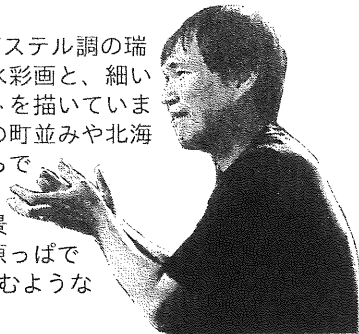 ステル調の瑞
水彩画と、細い
を描いていま
の町並みや北海
で
原っぱで
むような